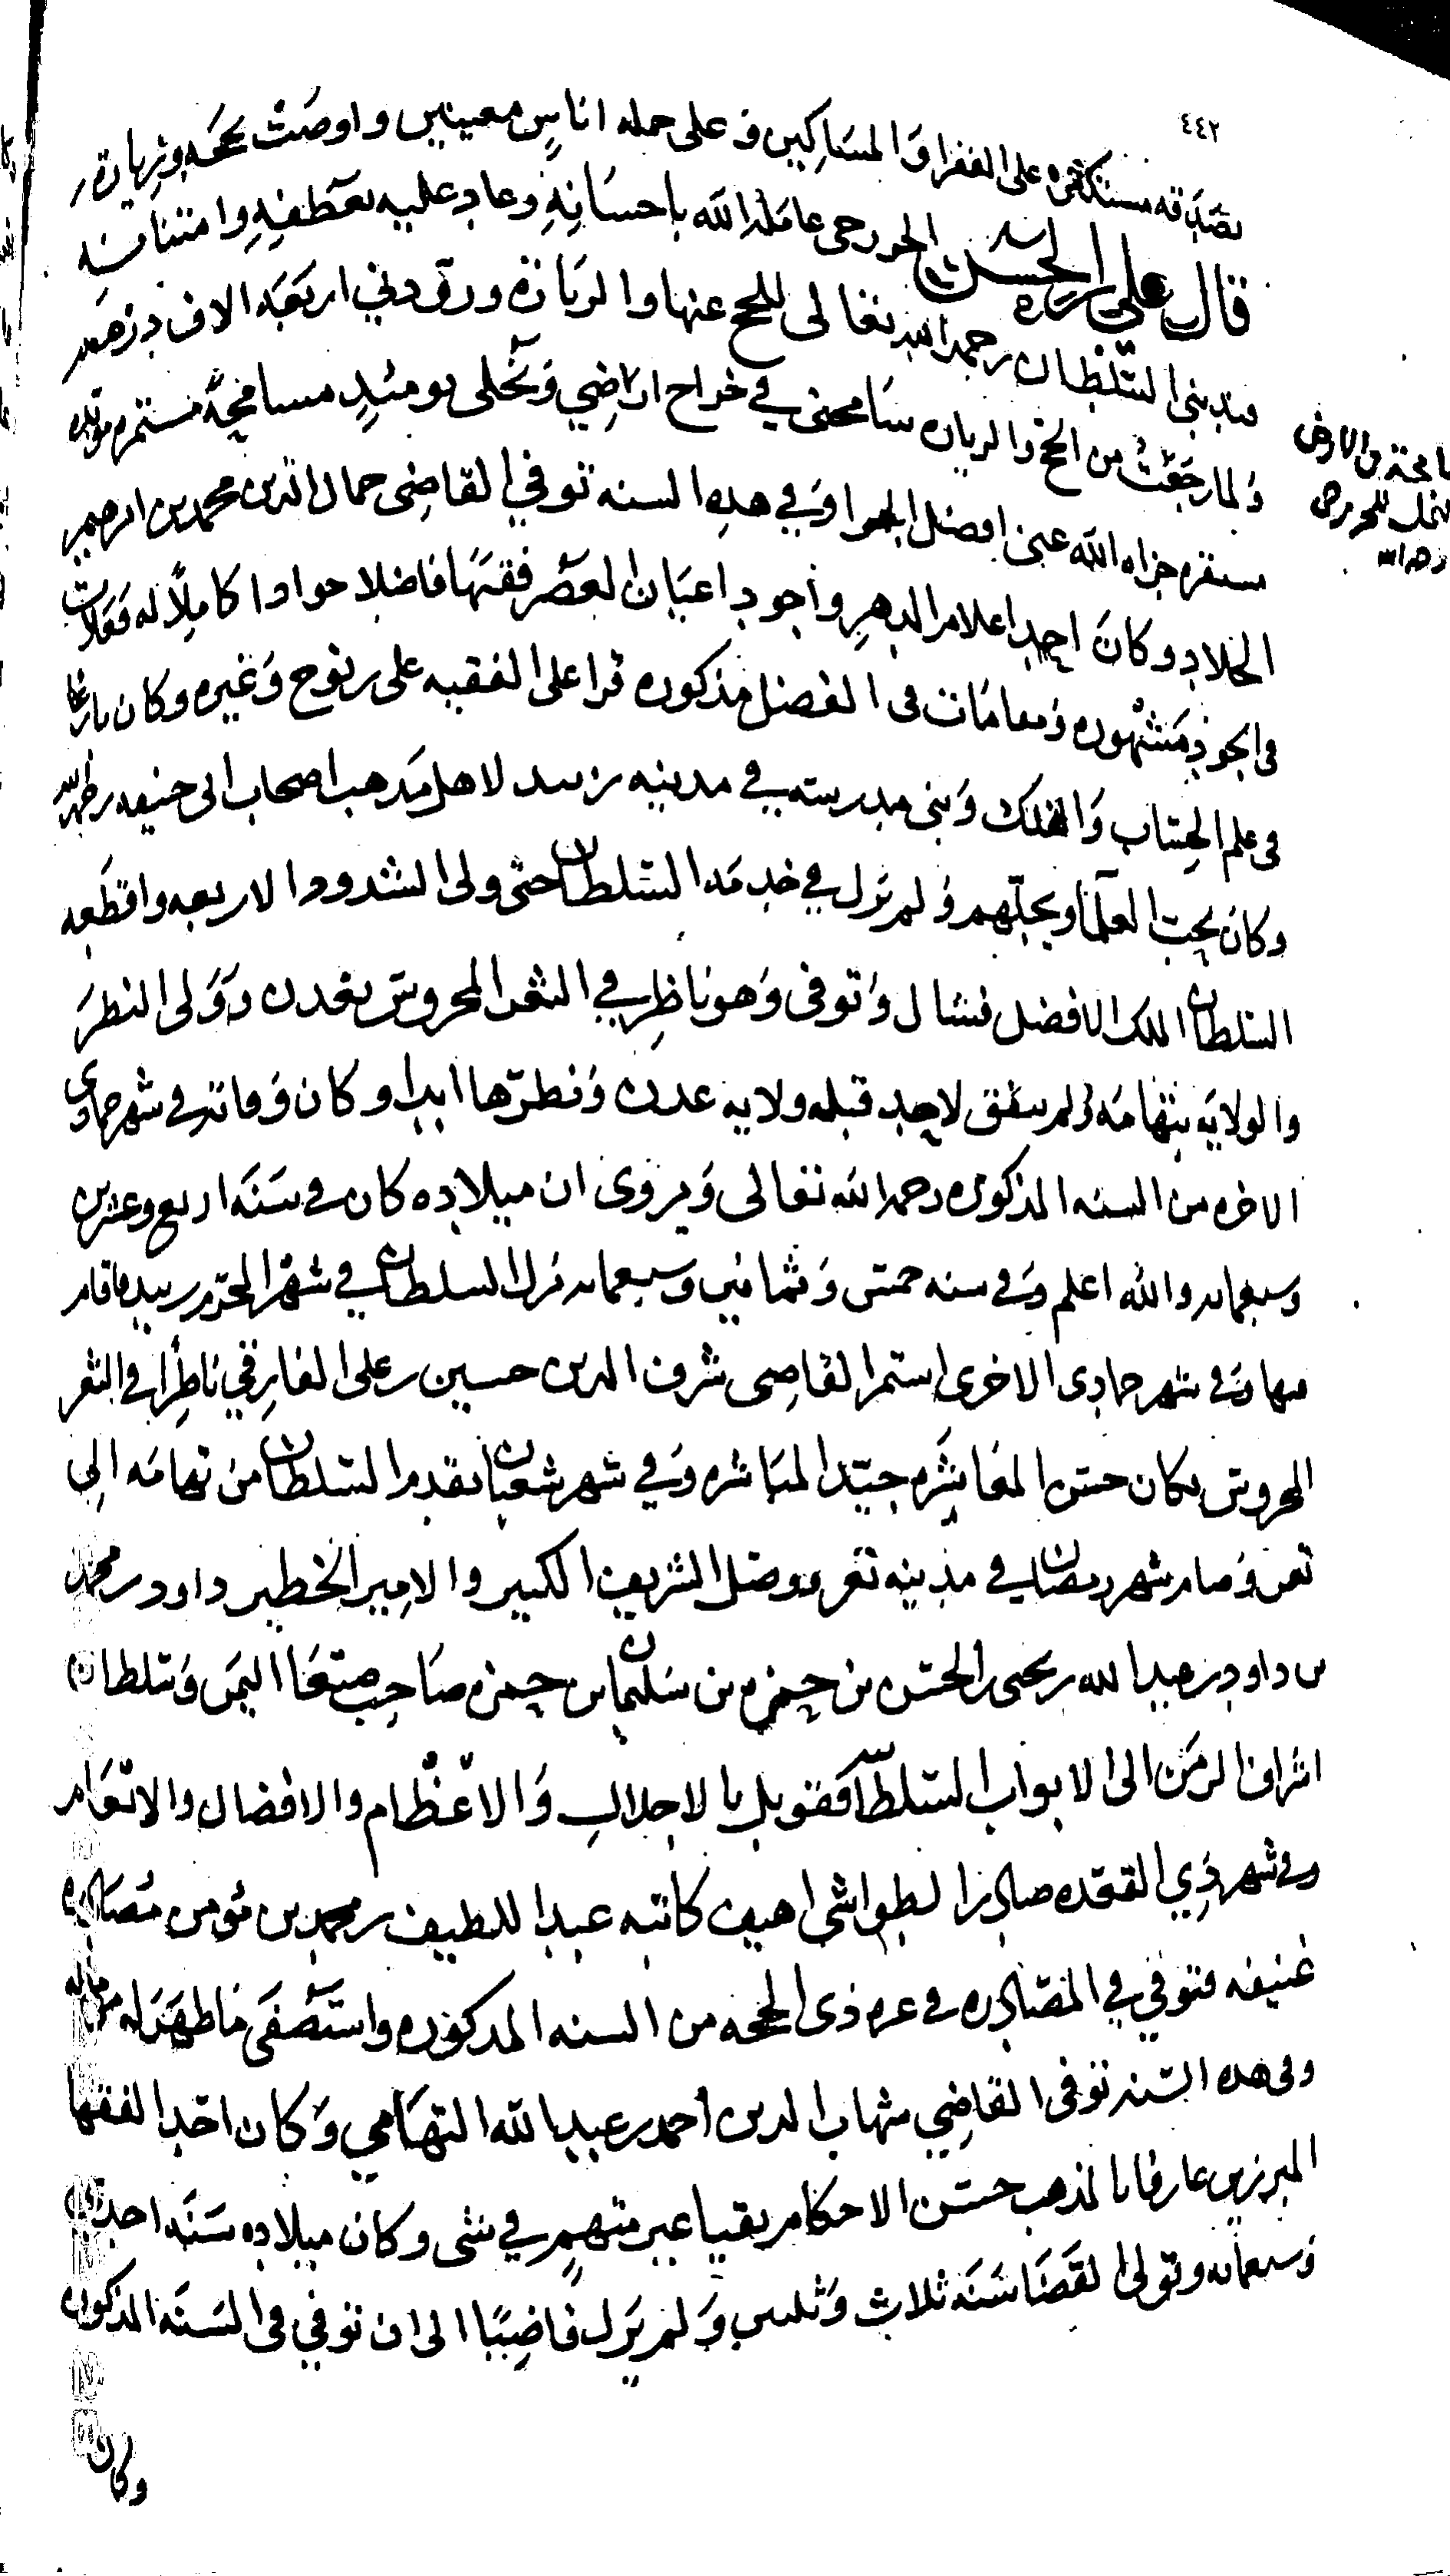 ٤٤٢
بصدقه مستكثره على الفقرا والمساكين وعلى جمله اناس معينين واوصت بحجه وزيارة
قال علي بن الحسن الخزرجي عامله الله باحسانه وعاد عليه بعطفه وامتنانه
فندبني السلطان رحمه الله تعالى للحج عنها والزيارة وزودني اربعة الاف درهم
ولما رجعت من الحج والزياره سامحني في خراج اراضي ونخلي يومئذ مسامحة مستمره مؤبده
مستقره جزاه الله عني افضل الجزا وفي هذه السنه توفي القاضي جمال الدين محمد بن ابرهيم
الجلاد وكان احد اعلام الدهر واجود اعيان العصر فقيها فاضلا جوادا كاملا له فعلات
في الجود مشهوره ومقامات في الفضل مذكوره قرا على الفقيه علي بن نوح وغيره وكان بارعا
في علم الحساب والفلك وبنى مدرسته في مدينه زبيد لاهل مذهب اصحاب ابي حنيفه رحمه الله
وكان يحب العلما ويجلهم ولم يزل في خدمة السلطان حتى ولى الشدود الاربعه واقطعه
السلطان الملك الافضل فشال وتوفي وهو ناظر في الثغر المحروس بعدن وولي النظر
والولاية بتهامه ولم يتفق لاحد قبله ولايه عدن ونظرها ابدا وكان وفاته في شهر جمادى
الاخره من السنه المذكوره رحمه الله تعالى ويروى ان ميلاده كان في سنة اربع وعشرين
وسبعمايه والله اعلم وفي سنه خمس وثمانين وسبعمايه نزل السلطان في شهر المحرم زبيد فاقام
فيها وفي شهر جمادى الاخرى استمر القاضي شرف الدين حسين بن علي الفارقي ناظرا في الثغر
المحروس فكان حسن المعاشره جيد المباشره وفي شهر شعبان تقدم السلطان من تهامه الى
تعز وصام شهر رمضان في مدينه تعز ووصل الشريف الكبير والامير الخطير داود بن محمد
بن داود بن عبد الله بن يحيى بن الحسن بن حمزه بن سليمان بن حمزه صاحب صنعا اليمن وسلطان
اشراف الزمن الى الابواب السلطانيه فقوبل بالاجلال والاعظام والافضال والانعام
وفي شهر ذي القعده صادر الطواشي اهيف كاتبه عبد اللطيف بن محمد بن مؤمن مصادره
عنيفه فتوفي في المصادره في غره ذي الحجه من السنه المذكوره واستصفى ما ظهر له من ماله
وفي هذه السنه توفي القاضي شهاب الدين احمد بن عبد الله التهامي وكان احد الفقها
المبرزين عارفا بالمذهب حسن الاحكام نقيا غير متهم في شي وكان ميلاده سنة احدى
وسبعمايه وتولى القضا سنة ثلاث وثلثين ولم يزل قاضيا الى ان توفي في السنة المذكوره
وكان